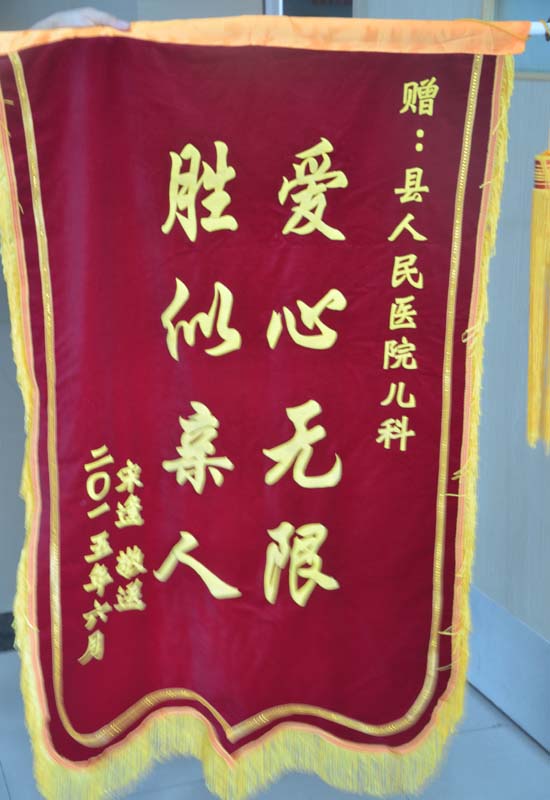 赠：县人民医院儿科
爱心无限
胜似亲人
宋逵 敬送
二〇一五年六月